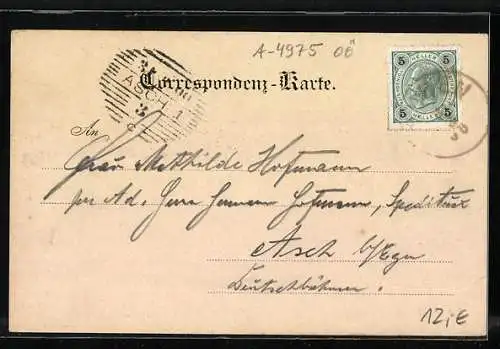 A-4975 OÖ
ASCH 1
5 HELLER 5
5 HELLER 5
Correspondenz-Karte.
An
Frau Mathilde Hofmann
per Ad. Herr Hermann Hofmann, Spediteur
Asch b/Eger
Deutschböhmen.
12,€